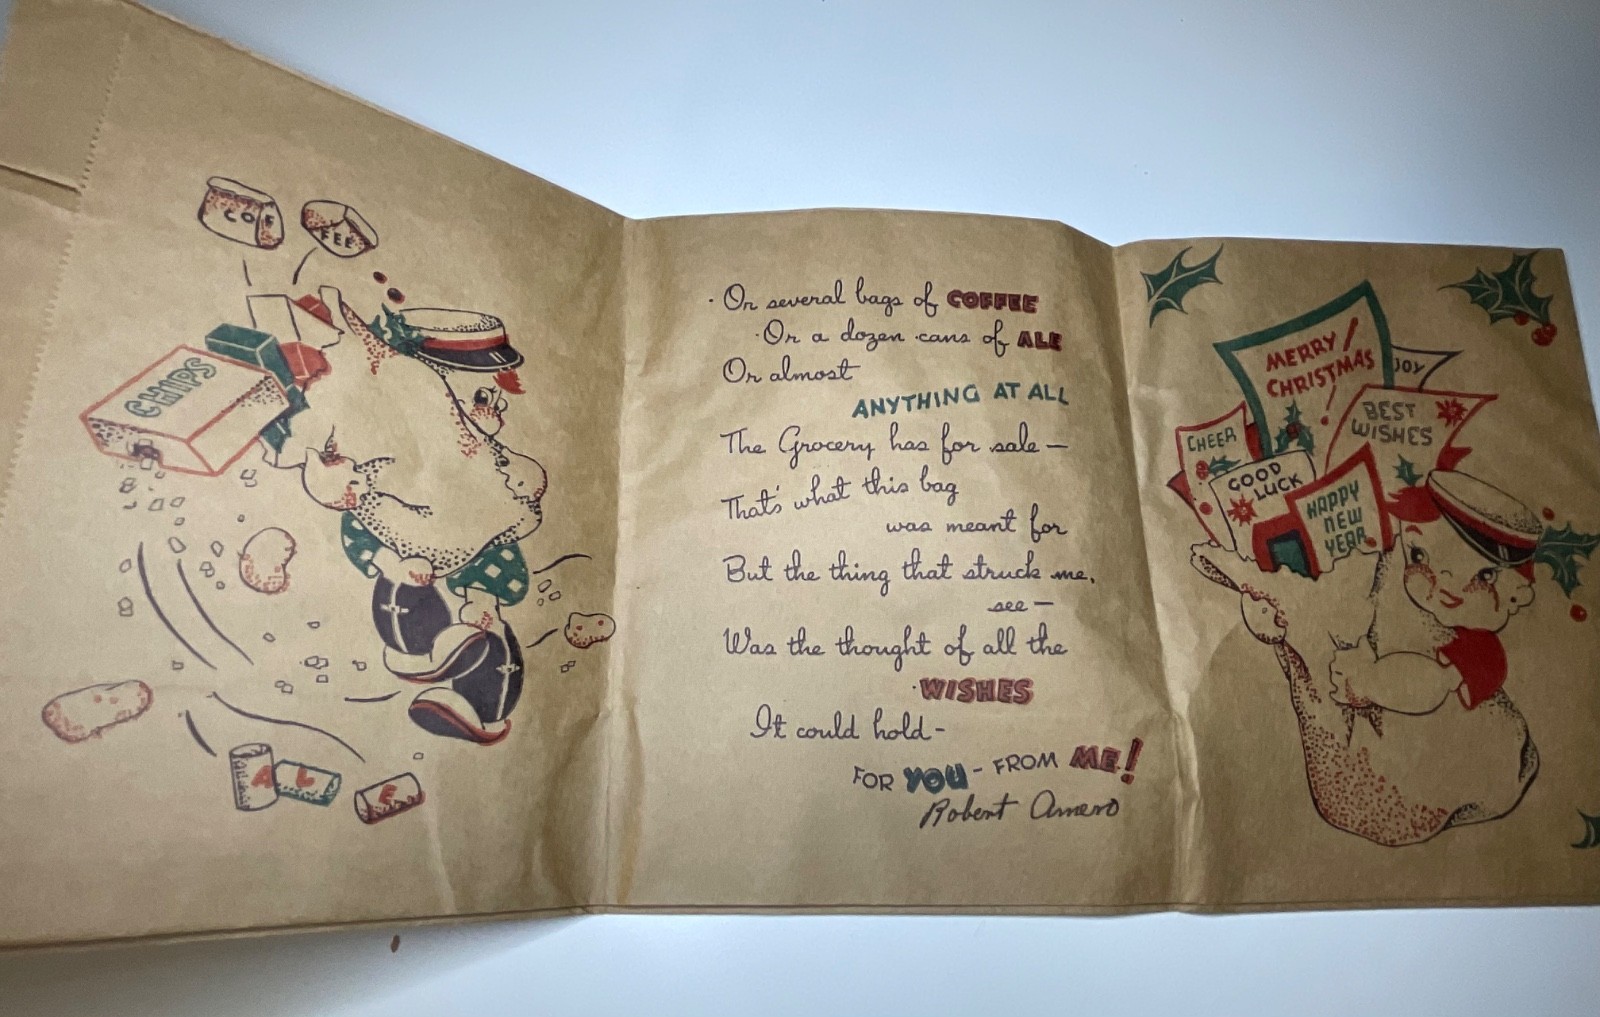 COF
FEE
CHIPS
A L E
Or several bags of COFFEE
Or a dozen cans of ALE
Or almost
ANYTHING AT ALL
The Grocery has for sale —
That's what this bag
was meant for
But the thing that struck me,
see —
Was the thought of all the
WISHES
It could hold -
FOR YOU - FROM ME!
Robert Amero
MERRY
CHRISTMAS!
JOY
BEST
WISHES
CHEER
GOOD
LUCK
HAPPY
NEW
YEAR